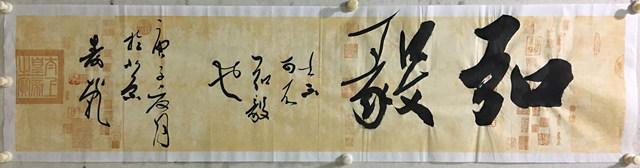 弘毅
士不
可不
弘毅
也
庚子夏月
於北京